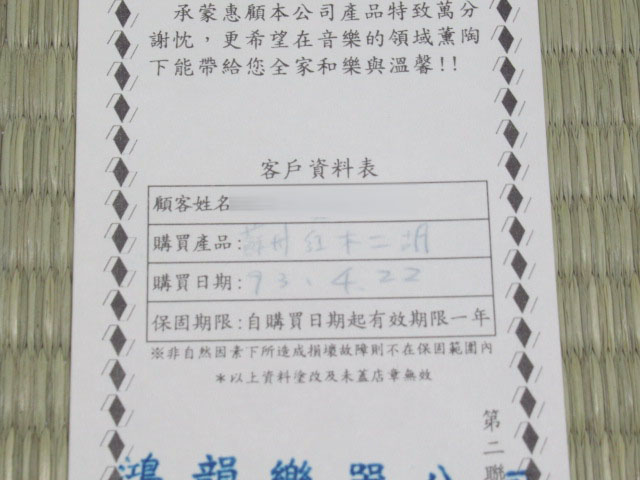 承蒙惠顧本公司產品特致萬分
謝忱,更希望在音樂的領域薰陶
下能帶給您全家和樂與溫馨!!
客戶資料表
顧客姓名
購買產品:蘇州紅木二胡
購買日期:93.4.22
保固期限:自購買日期起有效期限一年
※非自然因素下所造成損壞故障則不在保固範圍內
*以上資料塗改及未蓋店章無效
第二聯
鴻韻樂器公司